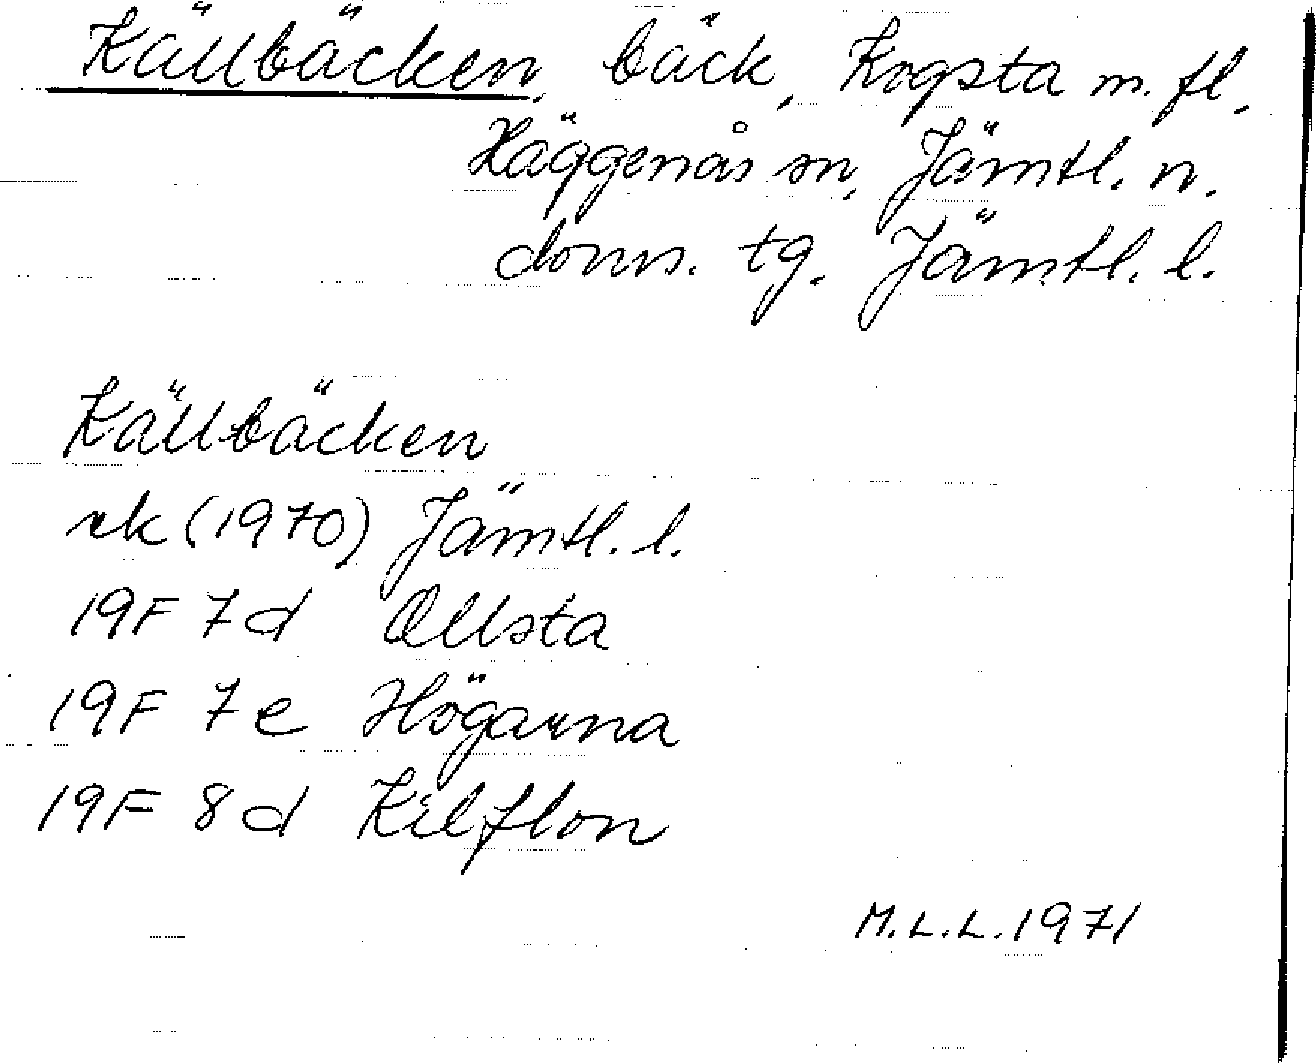 Källbäcken, bäck, Kogsta m. fl.
Häggenås sn, Jämtl. n.
doms. tg. Jämtl. l.
Källbäcken
rk (1970) Jämtl. l.
19F 7d Ollsta
19F 7e Högarna
19F 8d Kilflon
M.L.L. 1971